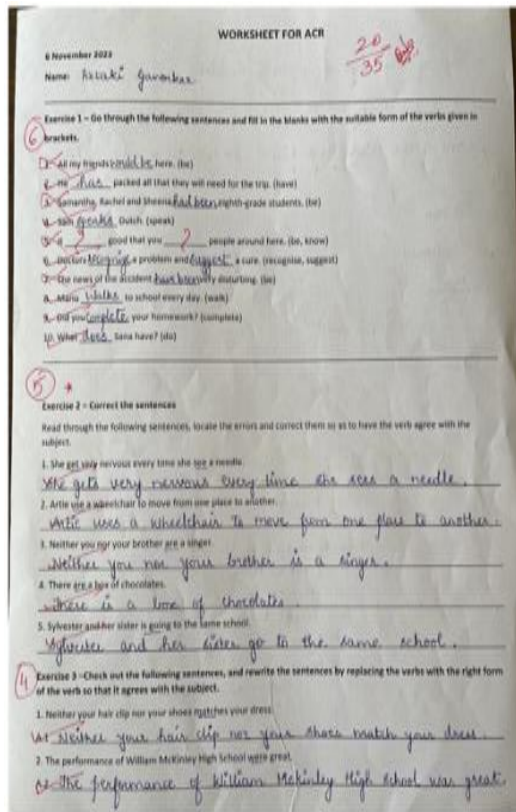 WORKSHEET FOR ACR
20
35
6 November 2023
Name:
6
Exercise 1 – Go through the following sentences and fill in the blanks with the suitable form of the verbs given in
brackets.
1. All my friends would be here. (be)
2. He has packed all that they will need for the trip. (have)
3. Samantha, Rachel and Sheena had been eighth-grade students. (be)
4. Sam speaks Dutch. (speak)
5. It ? good that you ? people around here. (be, know)
6. Doctors recognize a problem and suggest a cure. (recognise, suggest)
7. The news of the accident have been very disturbing. (be)
8. Maria walks to school every day. (walk)
9. Did you complete your homework? (complete)
10. What does Sana have? (do)
5 *
Exercise 2 – Correct the sentences
Read through the following sentences, locate the errors and correct them so as to have the verb agree with the
subject.
1. She get very nervous every time she see a needle.
She gets very nervous every time she sees a needle.
2. Artie use a wheelchair to move from one place to another.
Artie uses a wheelchair to move from one place to another.
3. Neither you nor your brother are a singer.
Neither you nor your brother is a singer.
4. There are a box of chocolates.
There is a box of chocolates.
5. Sylvester and her sister is going to the same school.
Sylvester and her sister go to the same school.
4
Exercise 3 –Check out the following sentences, and rewrite the sentences by replacing the verbs with the right form
of the verb so that it agrees with the subject.
1. Neither your hair clip nor your shoes matches your dress.
Neither your hair clip nor your shoes match your dress.
2. The performance of William McKinley High School were great.
The performance of William Mckinley High School was great.